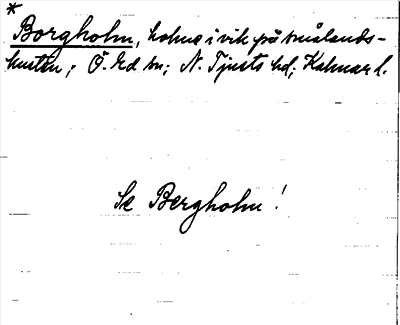 *
Borgholm, holme i vik på Smålands-
kusten; Ö. Ed sn; N. Tjusts hd; Kalmar l.
Se Bergholm!